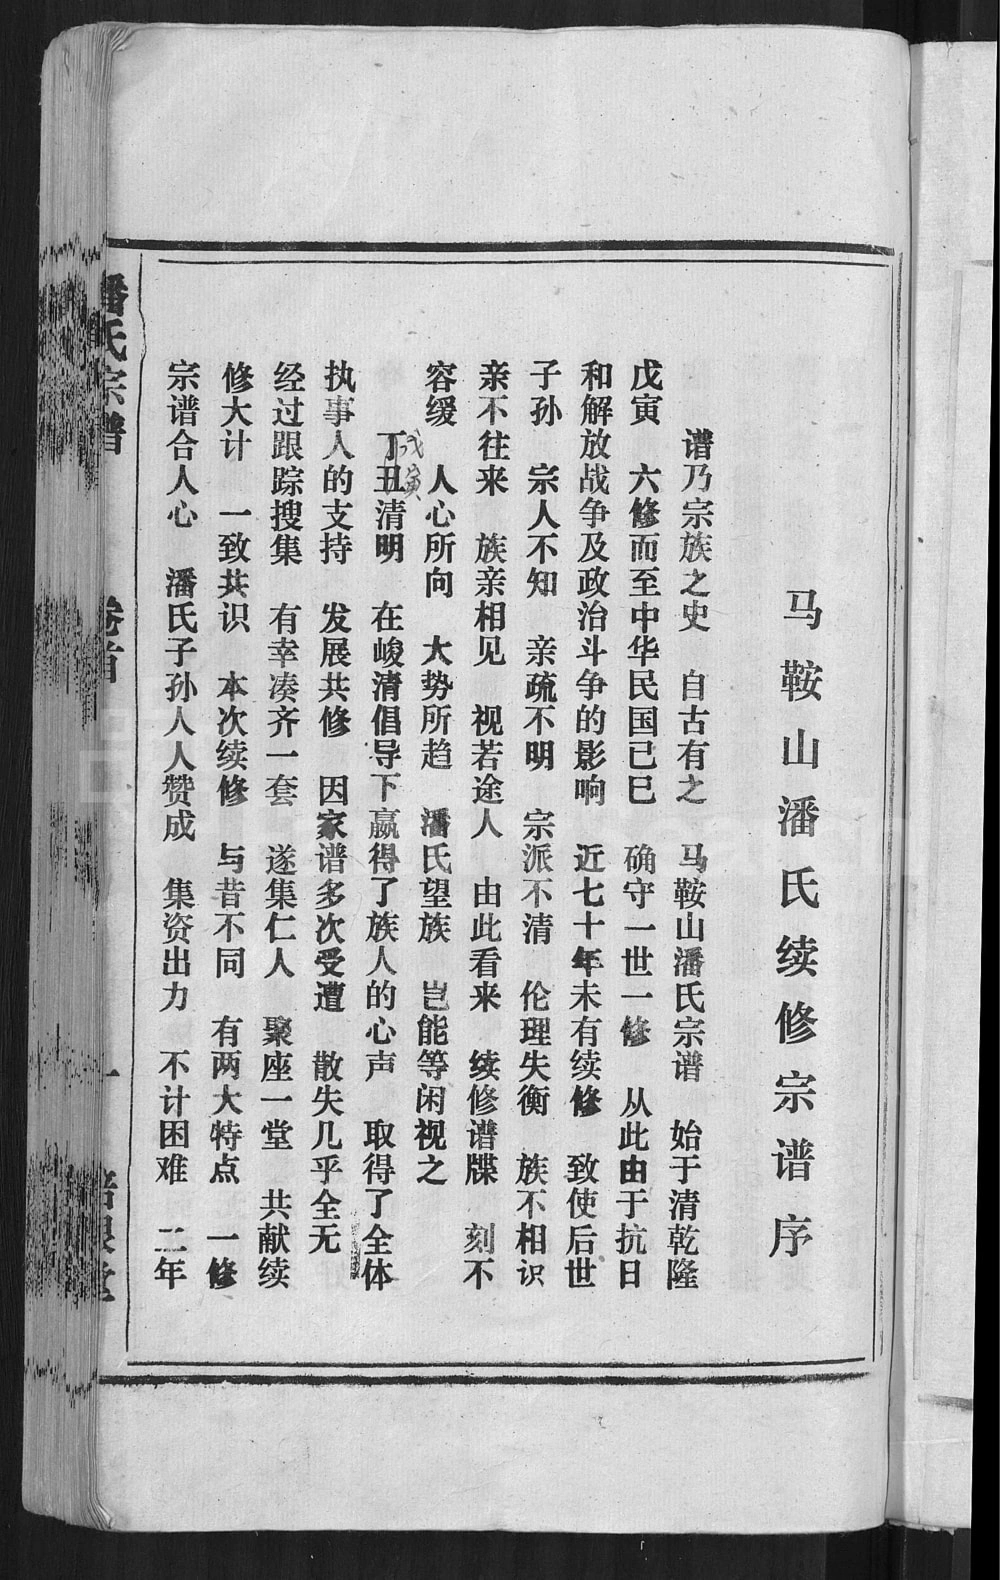 马鞍山潘氏续修宗谱序
谱乃宗族之史 自古有之 马鞍山潘氏宗谱 始于清乾隆
戊寅 六修而至中华民国已巳 确守一世一修 从此由于抗日
和解放战争及政治斗争的影响 近七十年未有续修 致使后世
子孙 宗人不知 亲疏不明 宗派不清 伦理失衡 族不相识
亲不往来 族亲相见 视若途人 由此看来 续修谱牒 刻不
容缓 人心所向 大势所趋 潘氏望族 岂能等闲视之
戊寅
丁丑清明 在峻清倡导下赢得了族人的心声 取得了全体
执事人的支持 发展共修 因家谱多次受遭 散失几乎全无
经过跟踪搜集 有幸凑齐一套 遂集仁人 聚座一堂 共献续
修大计 一致共识 本次续修 与昔不同 有两大特点 一修
宗谱合人心 潘氏子孙人人赞成 集资出力 不计困难 二年
潘氏宗谱 卷首 一